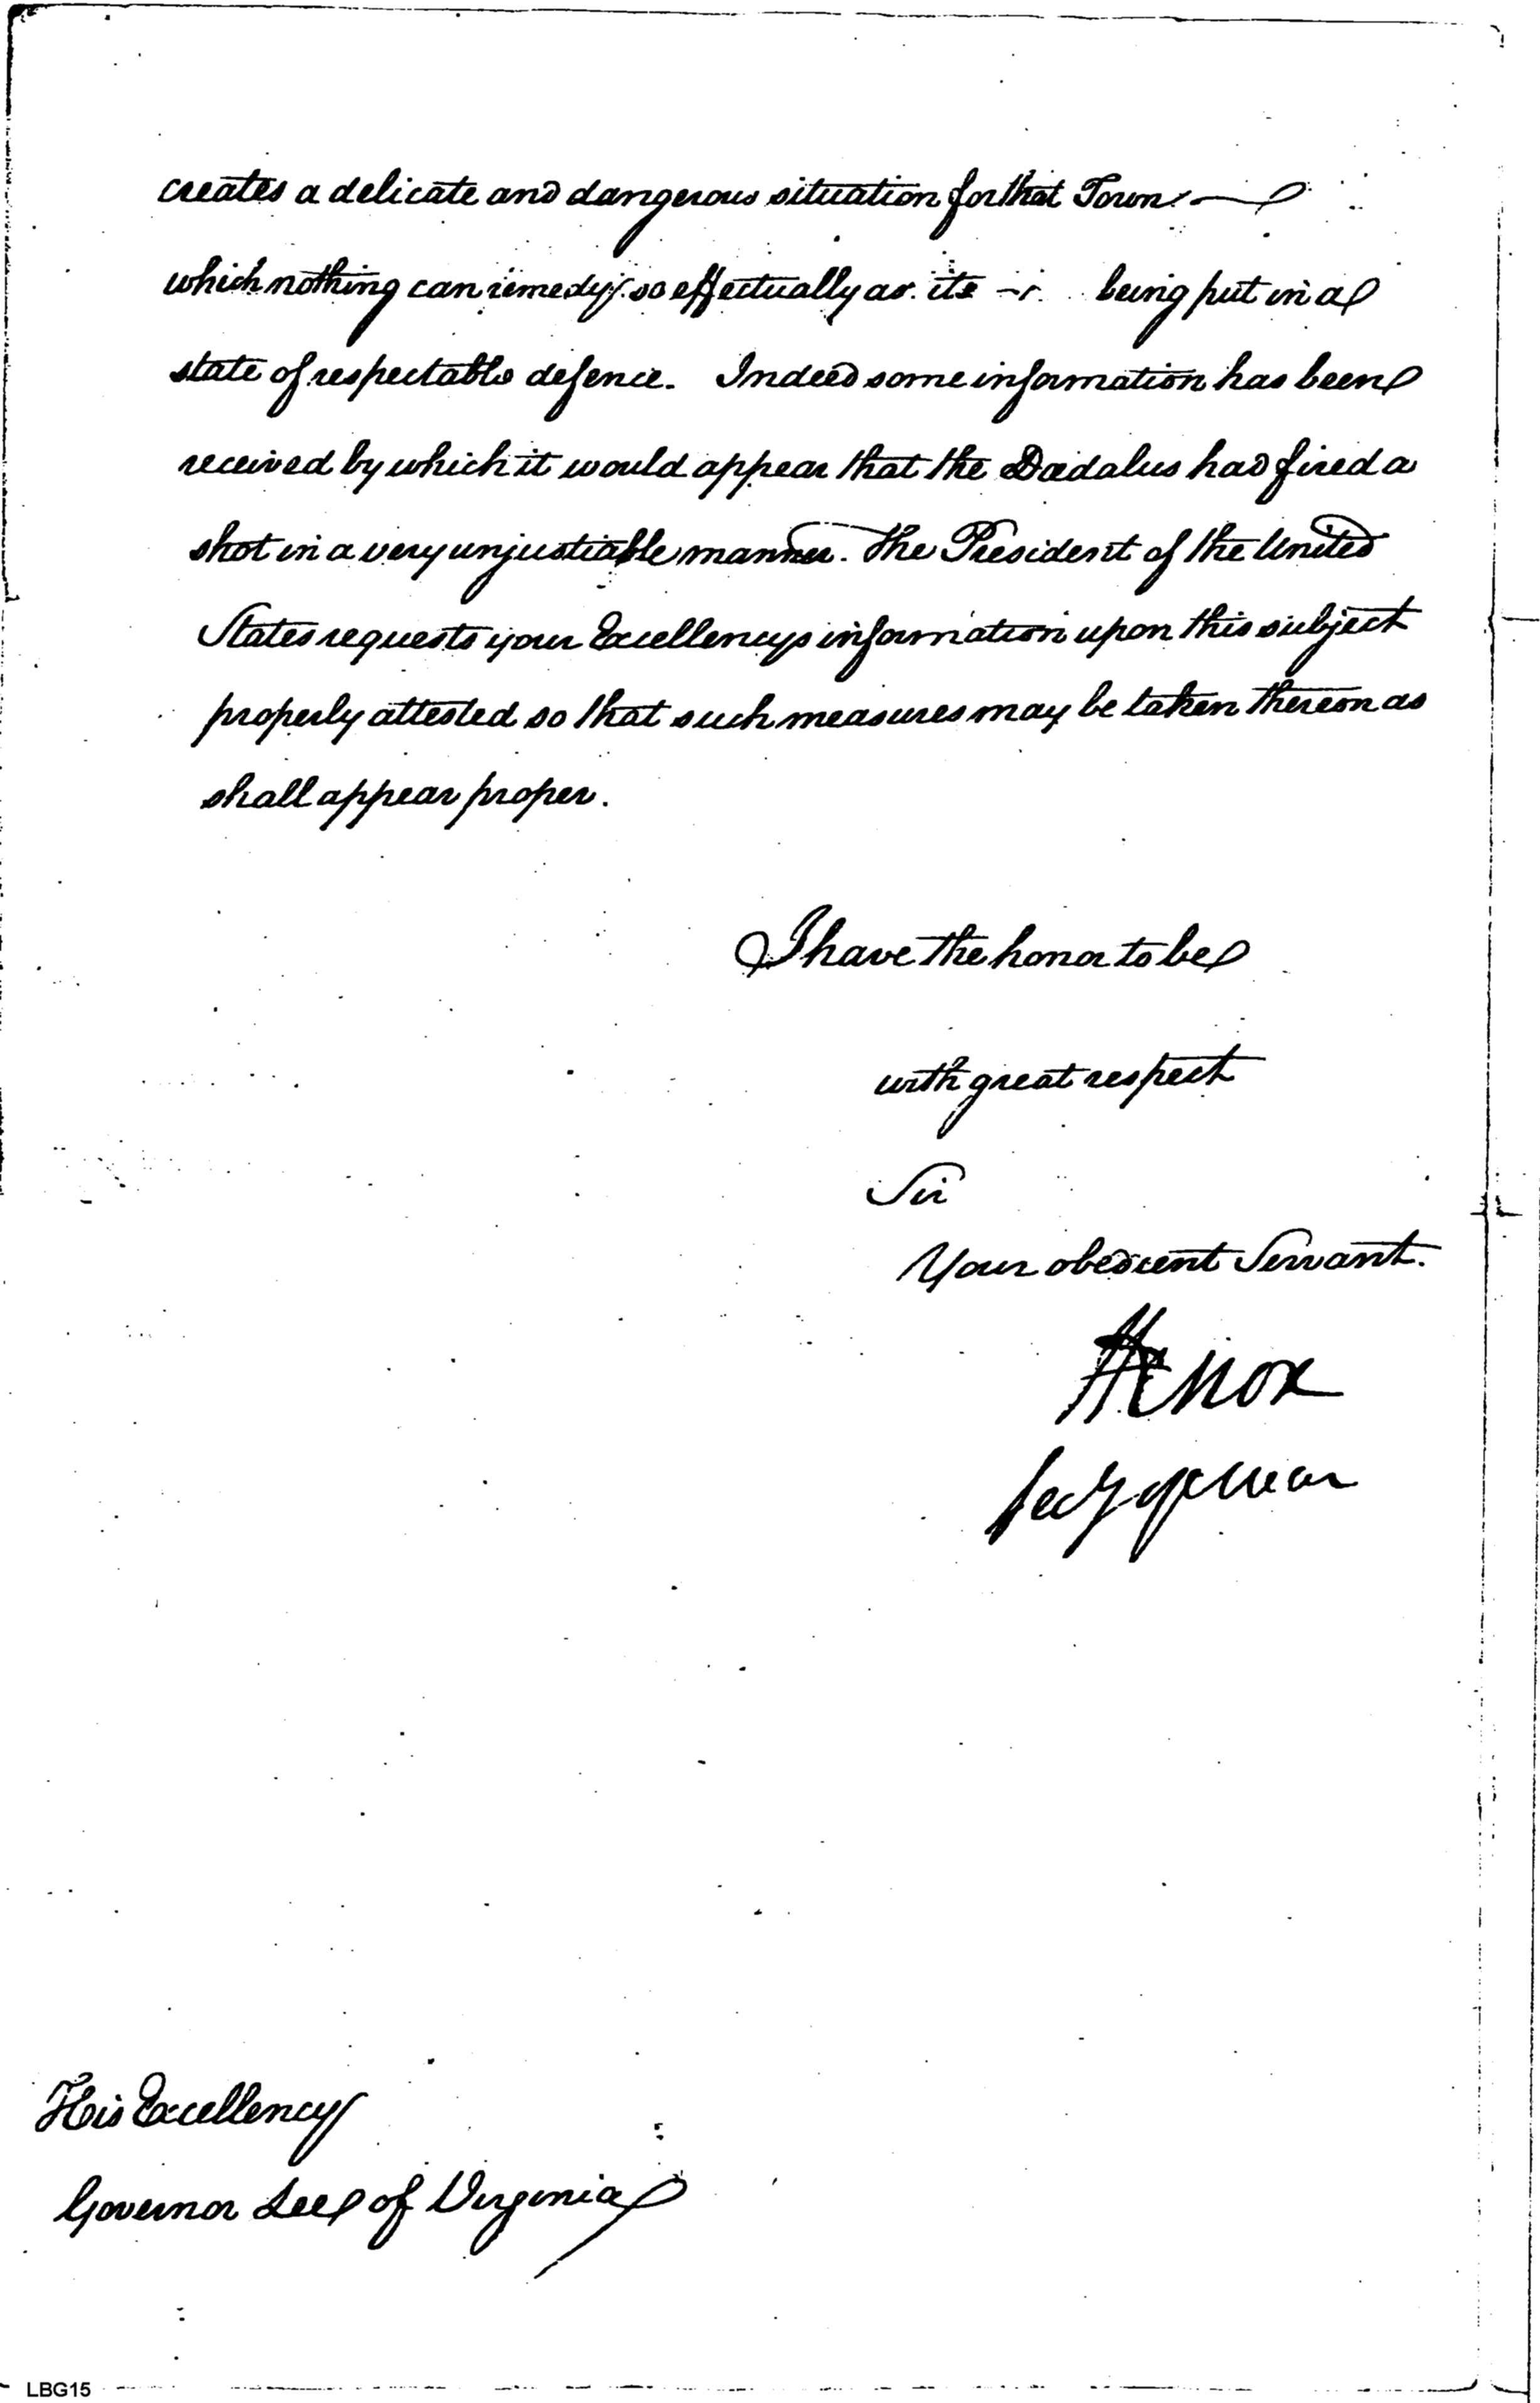 creates a delicate and dangerous situation for that Town
which nothing can remedy so effectually as its being put in a
state of respectable defence. Indeed some information has been
received by which it would appear that the Dædalus had fired a
shot in a very unjustiable manner. The President of the United
States requests your Excellencys information upon this subject
properly attested so that such measures may be taken thereon as
shall appear proper.
I have the honor to be
with great respect
Sir
Your obedient Servant.
HKnox
Secy of War
His Excellency
Governor Lee of Virginia
LBG15